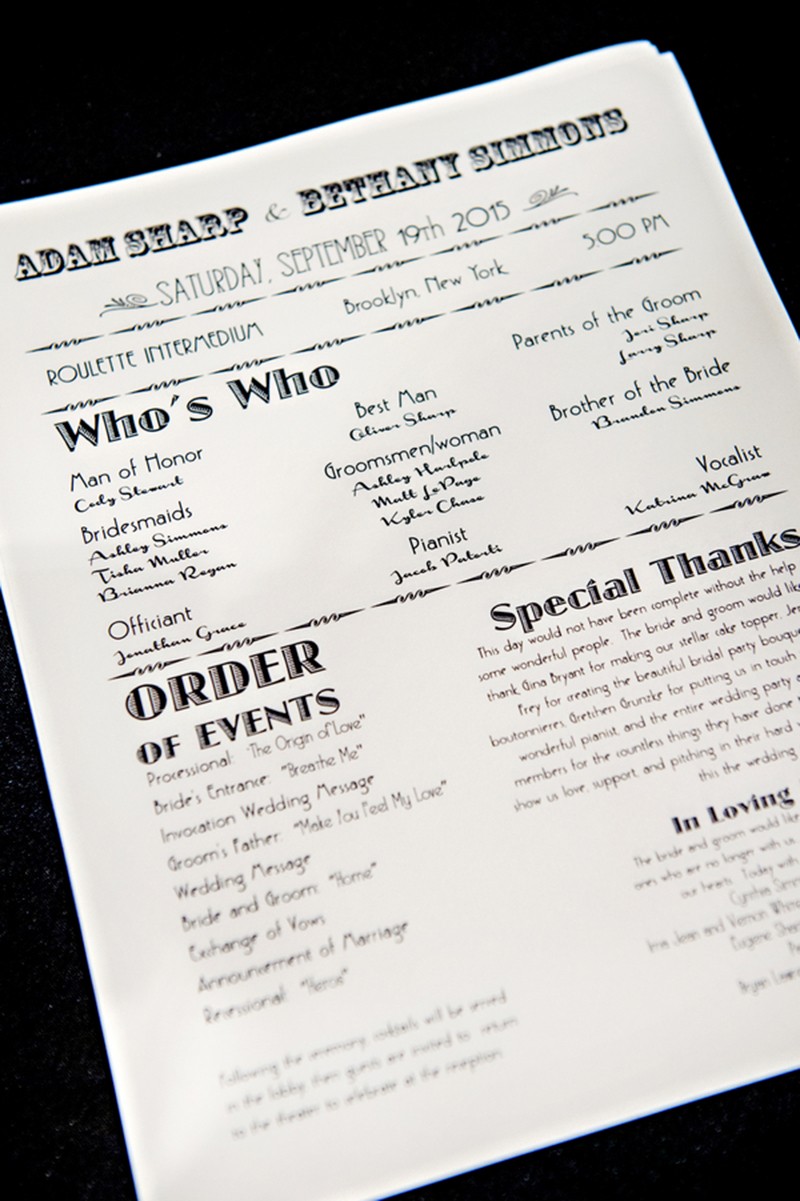 ADAM SHARP & BETHANY SIMMONS
SATURDAY, SEPTEMBER 19th 2015
ROULETTE INTERMEDIUM Brooklyn, New York 5:00 PM
Who's Who
Man of Honor
Cody Stewart
Bridesmaids
Ashley Simmons
Tisha Muller
Brianna Regan
Officiant
Jonathan Grace
Best Man
Oliver Sharp
Groomsmen/woman
Ashley Hurlpole
Matt LePage
Kyler Chase
Pianist
Jacob
Parents of the Groom
Jeri Sharp
Larry Sharp
Brother of the Bride
Brandon Simmons
Vocalist
Katrina McGraw
ORDER
OF EVENTS
Processional: "The Origin of Love"
Bride's Entrance: "Breathe Me"
Invocation Wedding Message
Groom's Father: "Make You Feel My Love"
Wedding Message
Bride and Groom: "Home"
Exchange of Vows
Announcement of Marriage
Recessional:
Following the ceremony, cocktails will be served
in the lobby, then guests are invited to return
to the theater to celebrate at the reception
Special Thanks
This day would not have been complete without the help
some wonderful people. The bride and groom would like
thank Gina Bryant for making our stellar cake topper,
Frey for creating the beautiful bridal party
boutonnieres, Gretchen Grunzke for putting us in touch
wonderful pianist, and the entire wedding party
members for the countless things they have done
show us love, support, and pitching in their hard
this the wedding
In Loving
The bride and groom would like
ones who are no longer with us.
our hearts. Today with
Cynthia
Irma Jean and Vernon
Eugene
Bryan